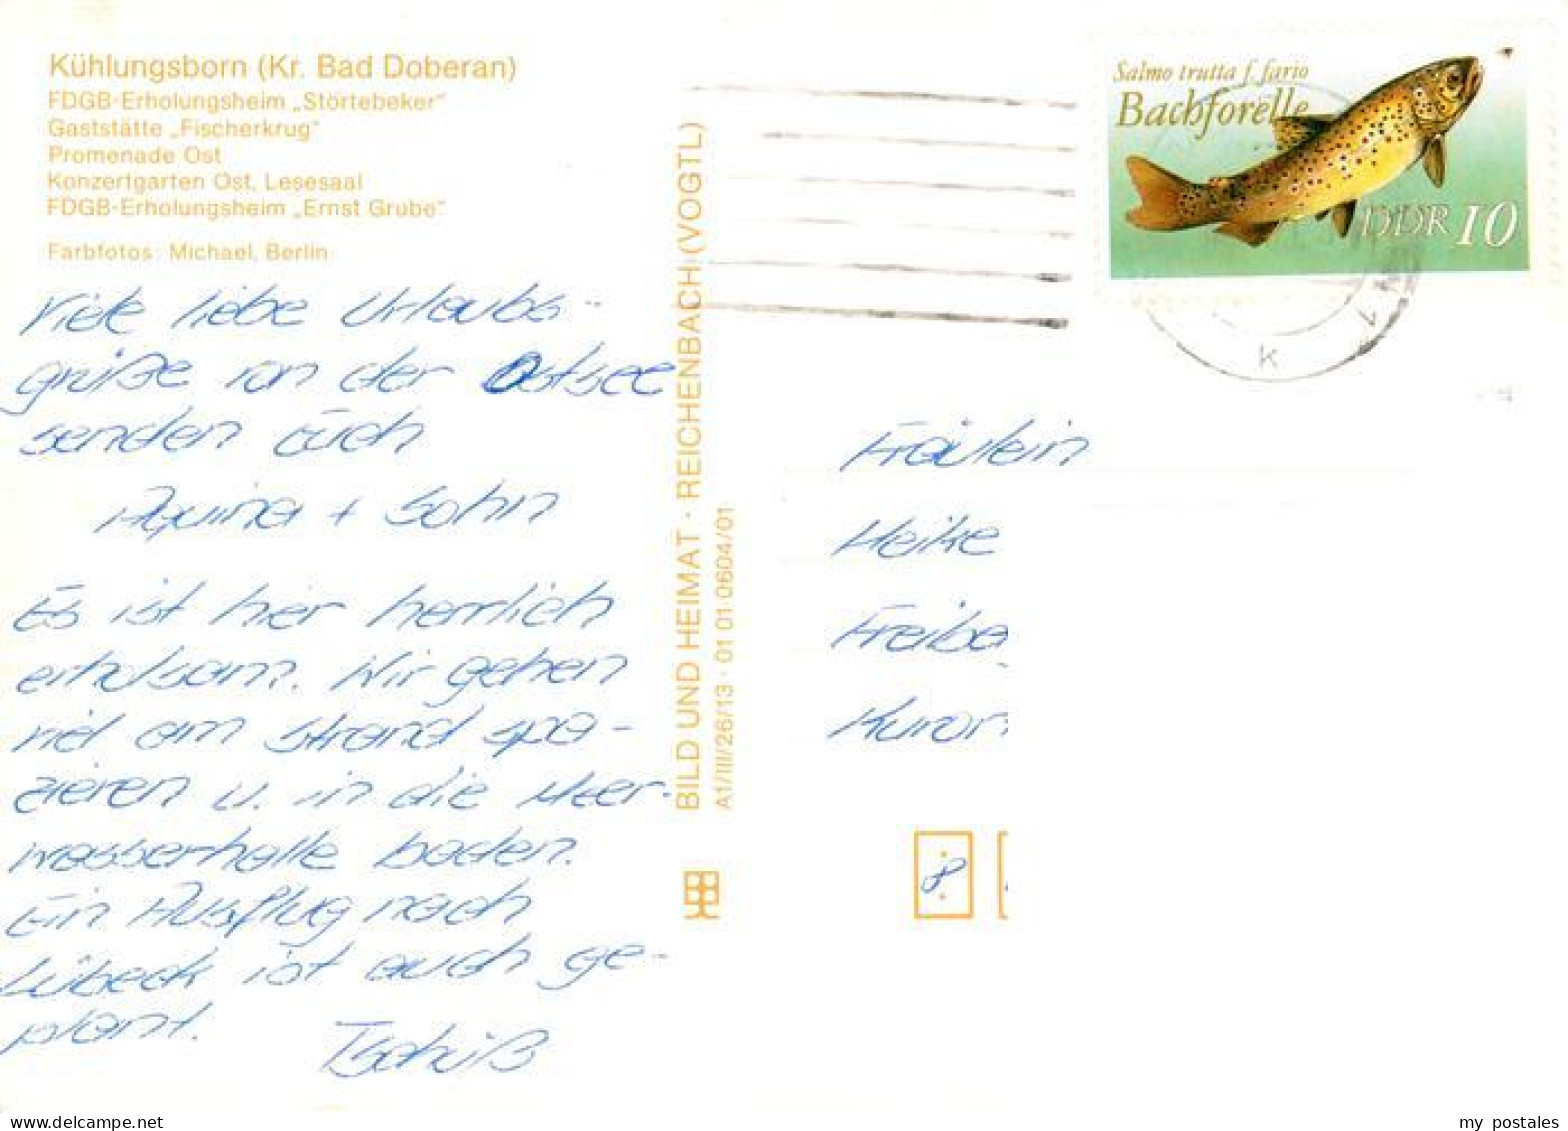 Kühlungsborn (Kr. Bad Doberan)
FDGB-Erholungsheim „Störtebeker"
Gaststätte „Fischerkrug"
Promenade Ost
Konzertgarten Ost, Lesesaal
FDGB-Erholungsheim „Ernst Grube"
Farbfotos: Michael, Berlin
Viele liebe Urlaubs-
grüße von der Ostsee
senden euch
+ Sohn
Es ist hier herrlich
erholsam. Wir gehen
viel am Strand spa-
zieren u. in die Meer-
wasserhalle baden.
Ein Ausflug nach
Lübeck ist auch ge-
plant.
Tschüß
BILD UND HEIMAT · REICHENBACH (VOGTL)
A1/III/26/13 · 01 01 0604/01
Salmo trutta f. fario
Bachforelle
DDR 10
K
Fräulein
Heike
Freibe
Kuror
8
my postales